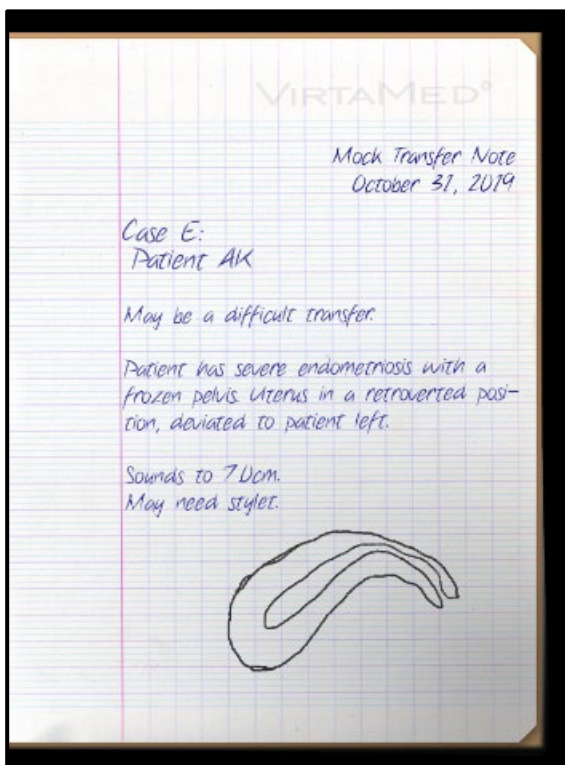 VIRTAMED°
Mock Transfer Note
October 31, 2019
Case E:
Patient AK
May be a difficult transfer.
Patient has severe endometriosis with a
frozen pelvis. Uterus in a retroverted posi-
tion, deviated to patient left.
Sounds to 7.0cm.
May need stylet.